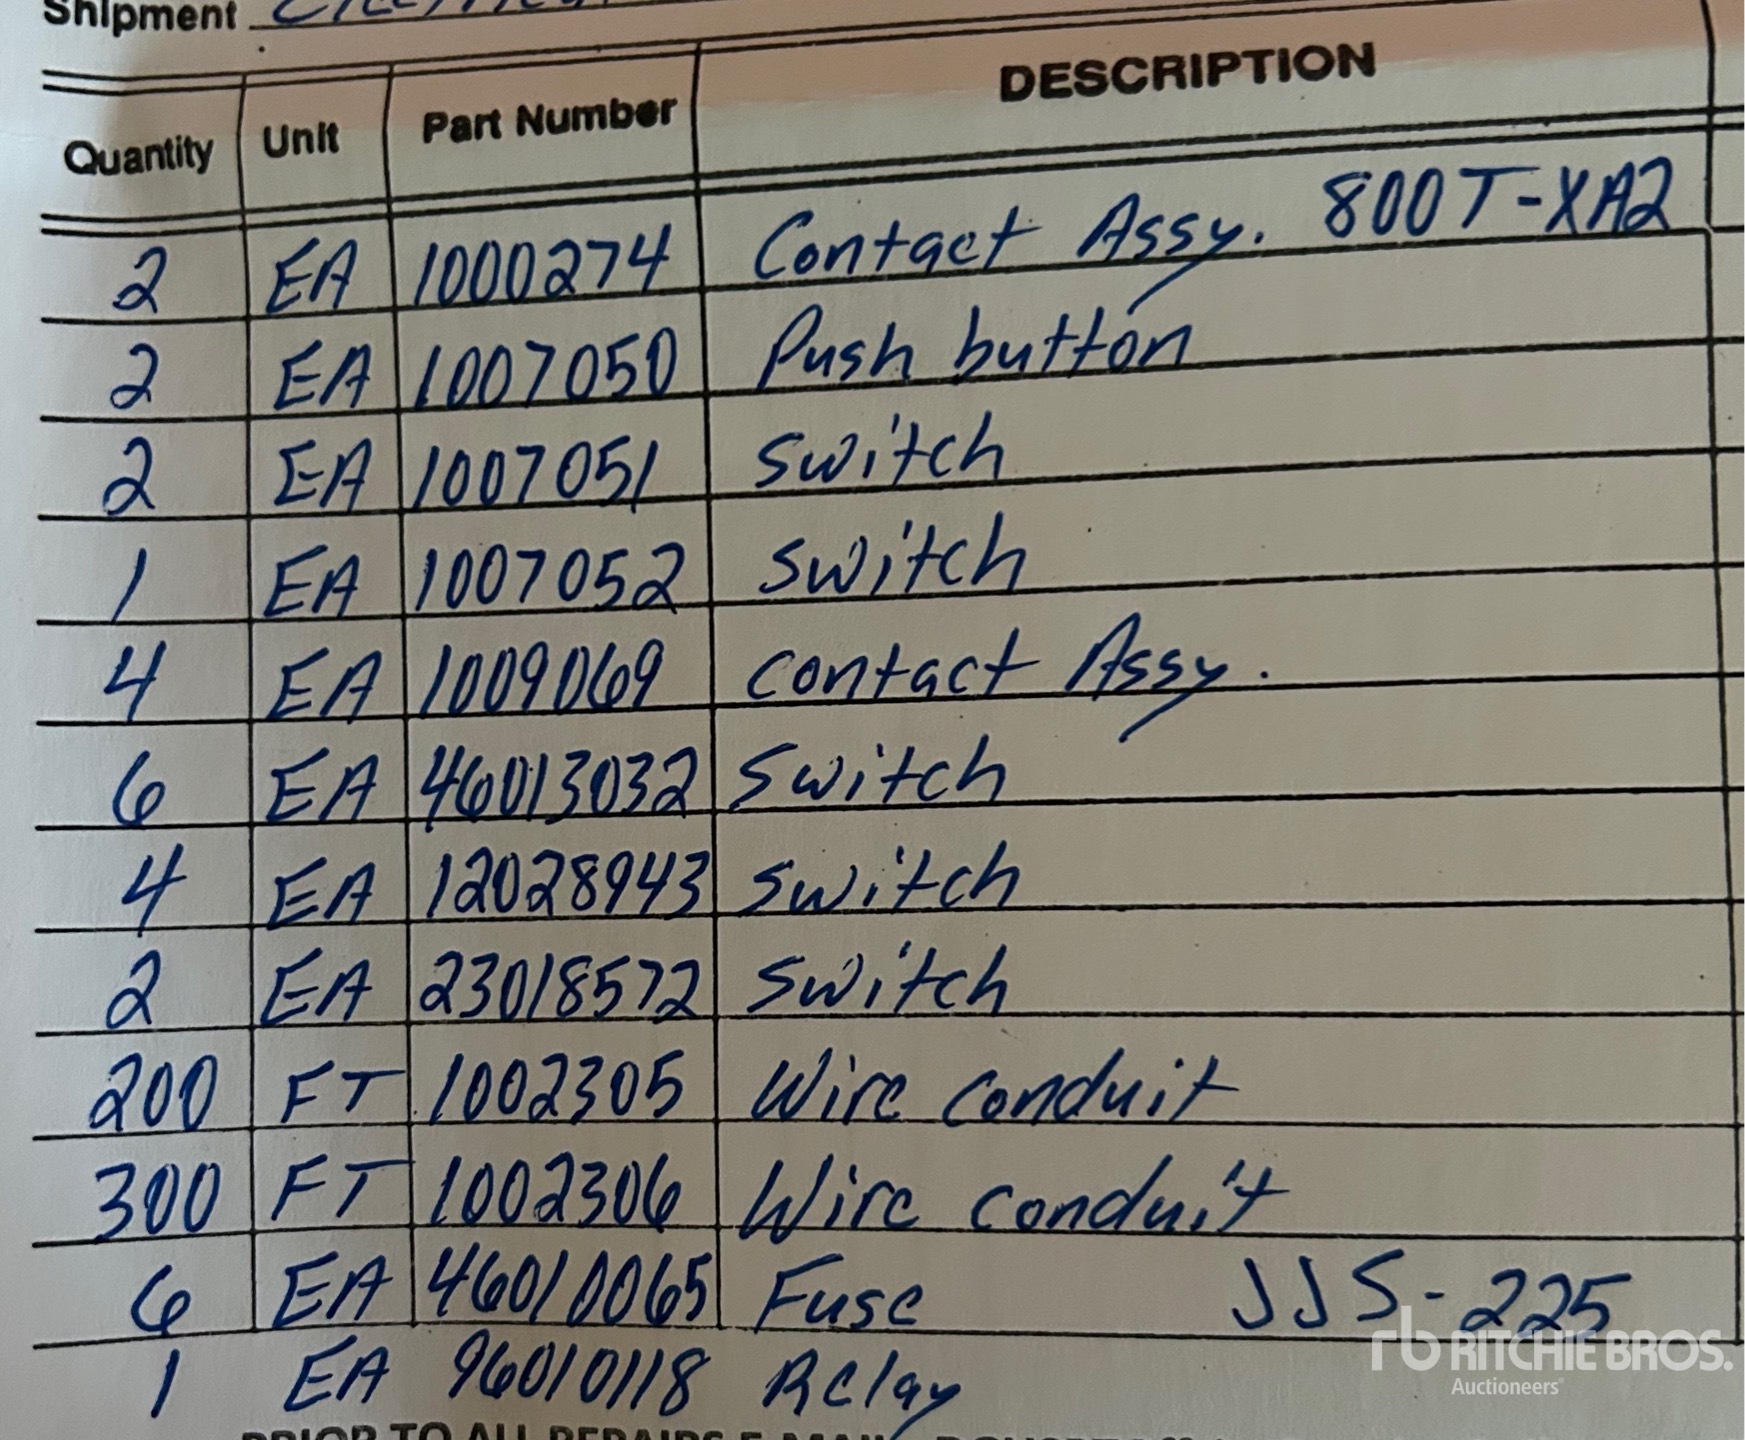 Shipment
Quantity Unit Part Number DESCRIPTION
2 EA 1000274 Contact Assy. 800T-XA2
2 EA 1007050 Push button
2 EA 1007051 switch
1 EA 1007052 switch
4 EA 1009069 contact Assy.
6 EA 46013032 switch
4 EA 12028943 switch
2 EA 23018572 switch
200 FT 1002305 Wire conduit
300 FT 1002306 Wire conduit
6 EA 46010065 Fuse JJS-225
1 EA 96010118 Relay
rb RITCHIE BROS.
Auctioneers
PRIOR TO ALL REPAIRS E-MAIL